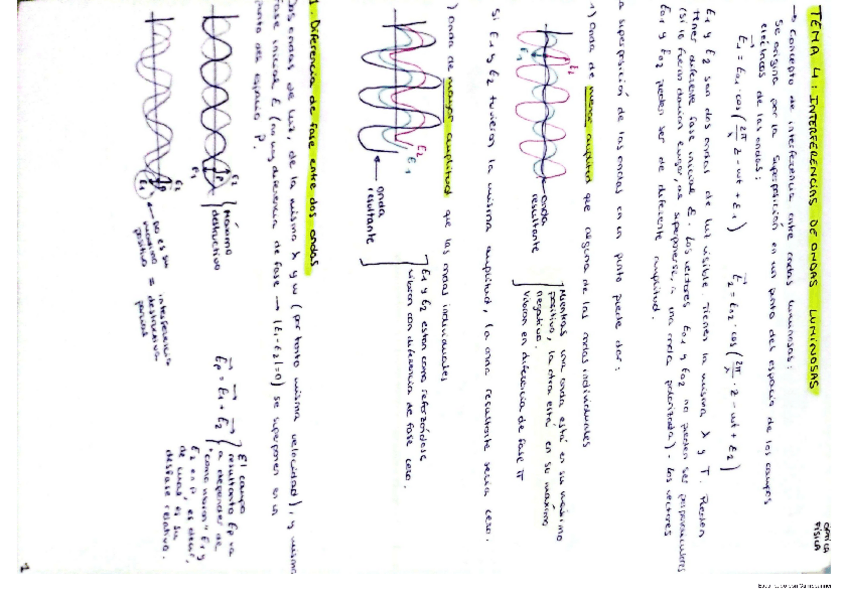 óptica
física
TEMA 4: INTERFERENCIAS DE ONDAS LUMINOSAS
→ Concepto de interferencia entre ondas luminosas:
Se origina por la superposición en un punto del espacio de los campos
eléctricos de las ondas:
E1 = E01 · cos (2π/λ · z - wt + ε1)    E2 = E02 · cos (2π/λ · z - wt + ε2)
E1 y E2 son dos ondas de luz visible. Tienen la misma λ y T. Pueden
tener diferente fase inicial ε. Los vectores E01 y E02 no pueden ser perpendiculares
(si lo fueran darían lugar, al superponerse, a una onda polarizada). Los vectores
E01 y E02 pueden ser de diferente amplitud.
La superposición de las ondas en un punto puede dar:
1) Onda de menor amplitud que alguna de las ondas individuales
E1
E2
onda
resultante
Mientras una onda está en su máximo
positivo, la otra está en su máximo
negativo.
Vibran en diferencia de fase π
Si E1 y E2 tuvieran la misma amplitud, la onda resultante sería cero.
) Onda de mayor amplitud que las ondas individuales
E2
E1
onda
resultante
E1 y E2 están como reforzándose
Vibran con diferencia de fase cero.
1. Diferencia de fase entre dos ondas
Dos ondas de luz, de la misma λ y w (por tanto misma velocidad), y misma
fase inicial ε (no hay diferencia de fase → |ε1-ε2|=0) se superponen en un
punto del espacio P.
E2
P
E1
Máximo
destructivo
Ep = E1 + E2
El campo
resultante Ep va
a depender de
"como vibran" E1 y
E2 en P, es decir,
de cuál es su
desfase relativo.
E2
P
E1
no es su
máximo
positivo
= interferencia
destructiva
parcial
1